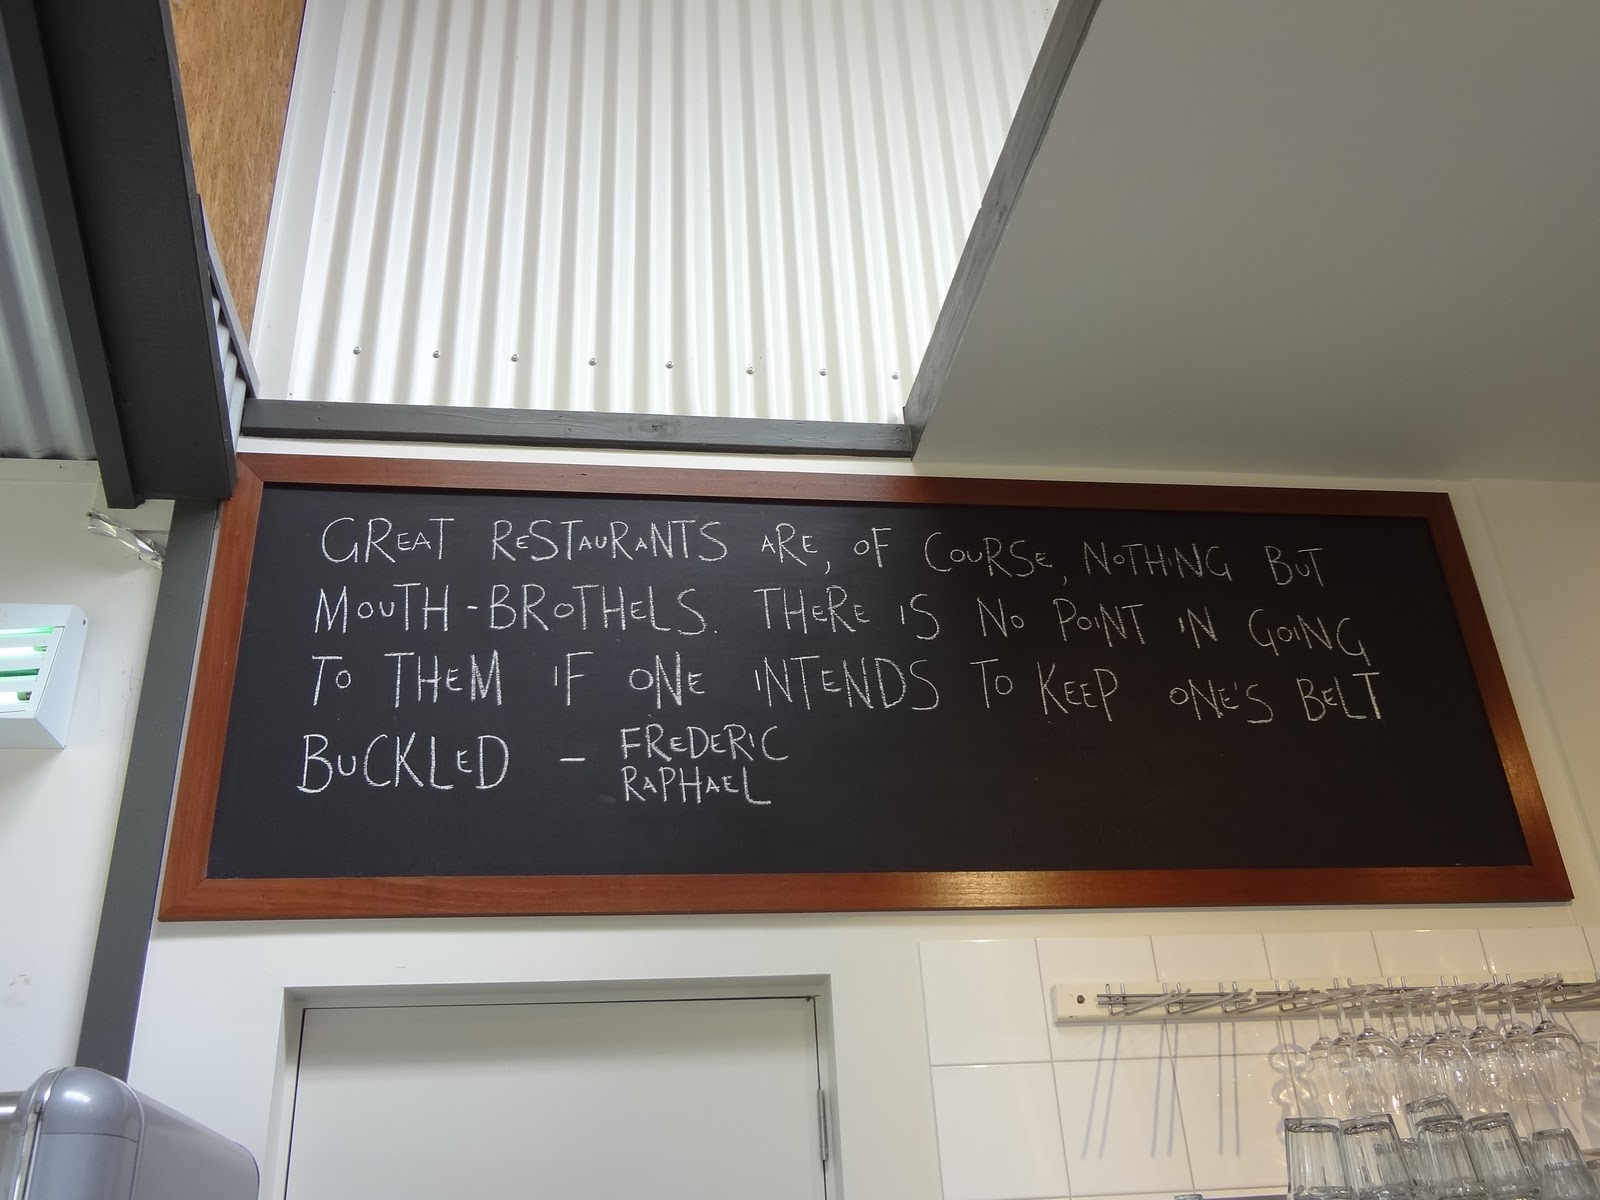 GREAT RESTAURANTS ARE, OF COURSE, NOTHING BUT
MOUTH-BROTHELS. THERE IS NO POINT IN GOING
TO THEM IF ONE INTENDS TO KEEP ONE'S BELT
BUCKLED - FREDERIC
RAPHAEL